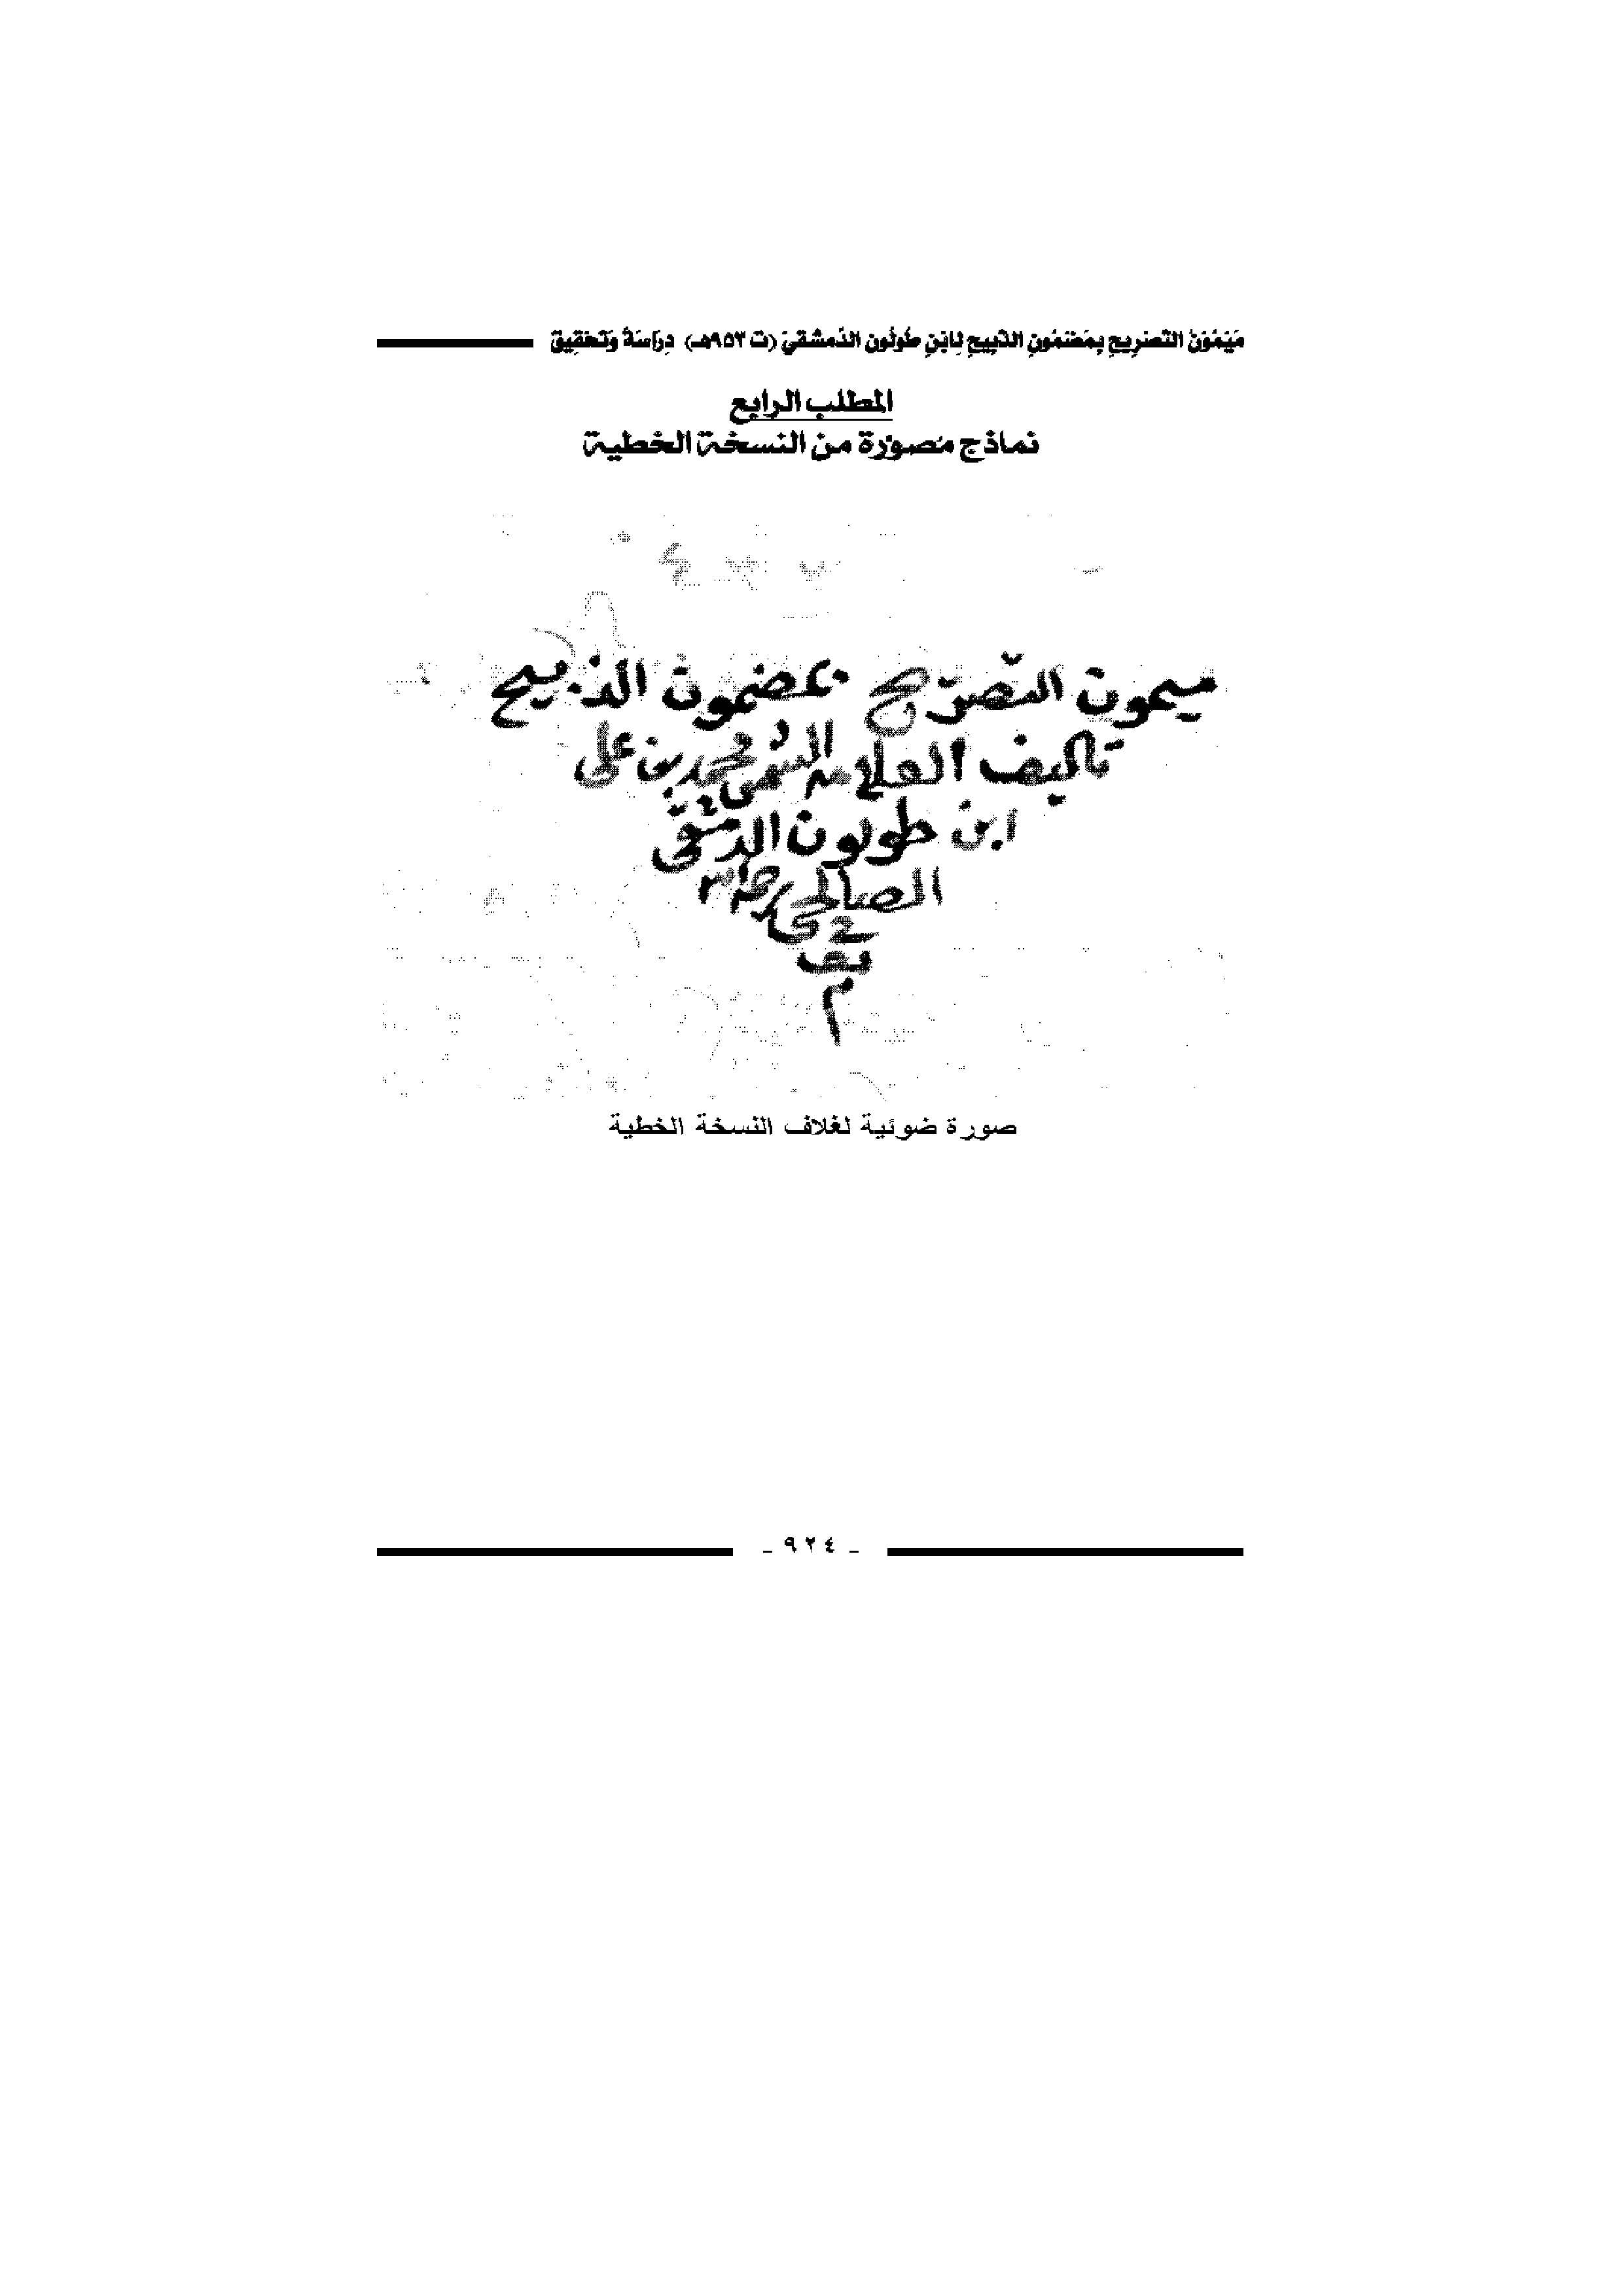 مَيْمُونُ التَّصْرِيحِ بِمَضْمُونِ الذَّبِيحِ لِابْنِ طُولُون الدِّمشْقيِّ (ت ٩٥٣هـ) دِرَاسَةً وَتَحْقِيقً
المطلب الرابع
نماذج مصوّرة من النسخة الخطية
ميمون التصريح بمضمون الذبيح
تاليف العلامه الشمس محمد بن علي
ابن طولون الدمشقي
الصالحي رحمه الله
صورة ضوئية لغلاف النسخة الخطية
- ٩٢٤ -